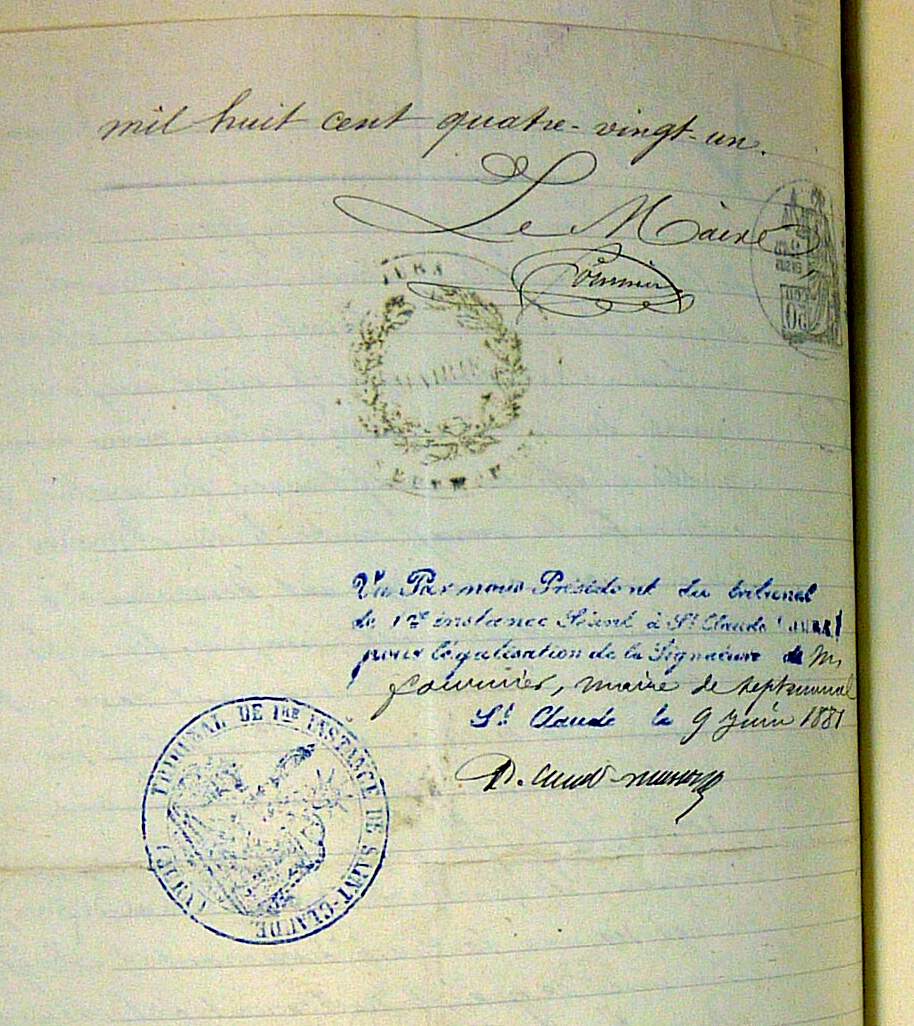 mil huit cent quatre-vingt-un.
Le Maire
Fournier
JURA
MAIRIE
50
Vu Par nous Président du tribunal
de 1re instance Séant à St Claude (JURA)
pour légalisation de la Signature de M
Fournier, maire de Septmoncel
St Claude le 9 Juin 1881
TRIBUNAL DE 1RE INSTANCE DE SAINT-CLAUDE